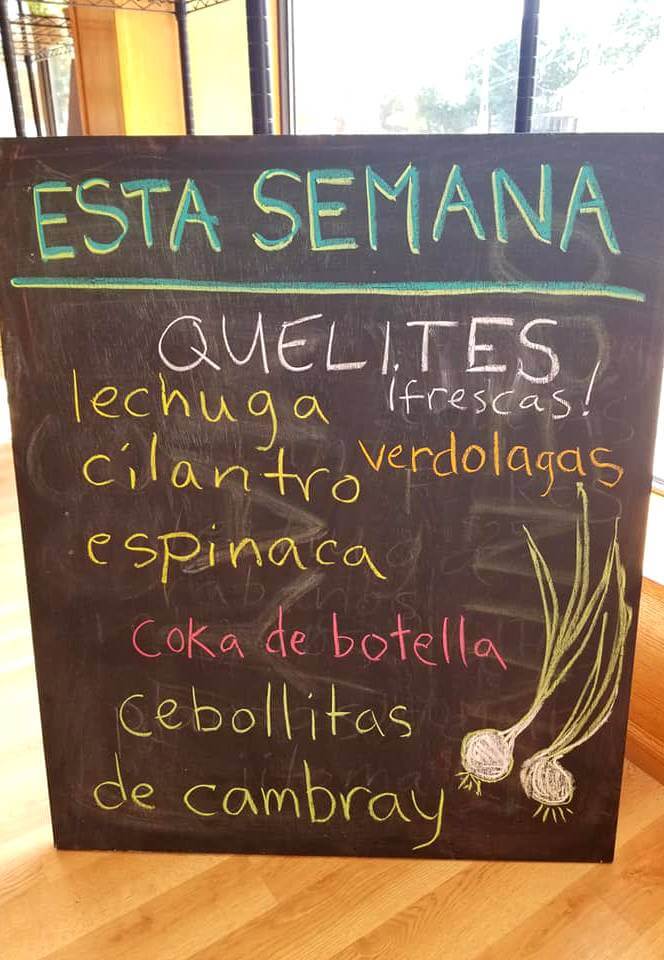 ESTA SEMANA
QUELITES
lechuga
¡frescas!
cilantro
verdolagas
espinaca
coka de botella
cebollitas
de cambray